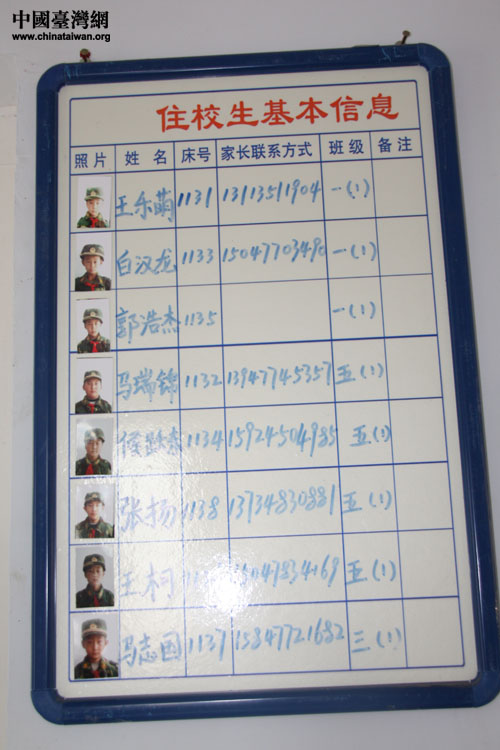 中國臺灣網
www.chinataiwan.org
住校生基本信息
照片 姓名 床号 家长联系方式 班级 备注
王乐萌 1131 13113511904 一(1)
白汉龙 1133 15047703490 一(1)
郭浩杰 1135 一(1)
马瑞锦 1132 13947745357 五(1)
1134 15924504985 五(1)
张扬 1138 13734830881 五(1)
王柯 15047834169 五(1)
马志国 1137 15847721682 三(1)